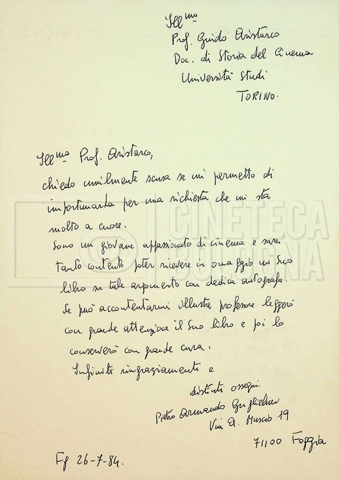 Ill.mo
Prof. Guido Aristarco
Doc. di Storia del Cinema
Università Studi
TORINO.
Ill.mo Prof. Aristarco,
chiedo umilmente scusa se mi permetto di
importunarla per una richiesta che mi sta
molto a cuore.
Sono un giovane appassionato di cinema e sarei
tanto contento poter ricevere in omaggio un Suo
libro su tale argomento con dedica autografa.
Se può accontentarmi illustre professore leggerò
con grande attenzione il Suo libro e poi lo
conserverò con grande cura.
Infiniti ringraziamenti e
distinti ossequi
Pietro Armando Guglielmo
Via A. 19
71100 Foggia
Fg 26-7-84.
CINETECA
BOLOGNA